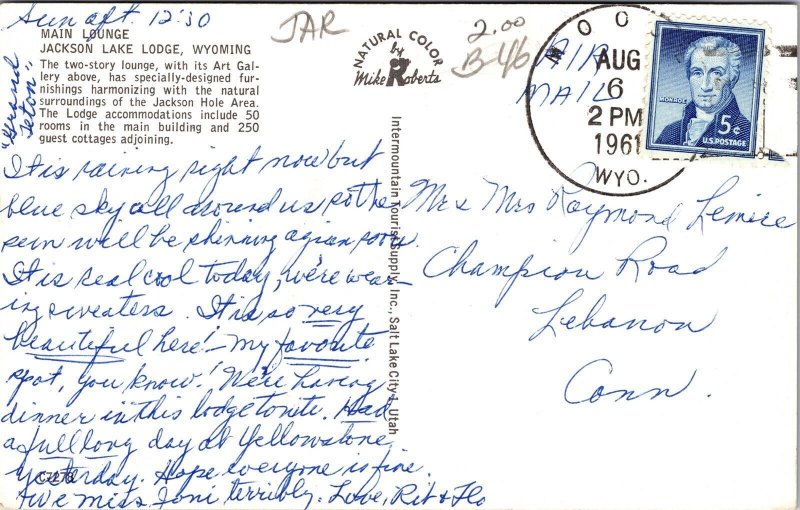 Sun aft. 12:30
MAIN LOUNGE
JACKSON LAKE LODGE, WYOMING
The two-story lounge, with its Art Gal-
lery above, has specially-designed fur-
nishings harmonizing with the natural
surroundings of the Jackson Hole Area.
The Lodge accommodations include 50
rooms in the main building and 250
guest cottages adjoining.
"Grand
Teton"
It is raining right now but
blue sky all around us so the
sun will be shinning again soon.
It is real cool today, we're wear-
ing sweaters. It is so very
beautiful here! – my favorite
spot, you know! We're having
dinner in this lodge tonite. Had
a full long day at Yellowstone
yesterday. Hope everyone is fine.
+ we miss Joni terribly. Love, Rit & Flo
C7276
JAR
2.00
B-46
NATURAL COLOR
by
Mike Roberts
Intermountain Tourist Supply, Inc., Salt Lake City 1, Utah
AIR
MAIL
MOO
AUG
6
2 PM
1961
WYO.
MONROE
5¢
U.S. POSTAGE
Mr & Mrs Raymond Lemire
Champion Road
Lebanon
Conn.